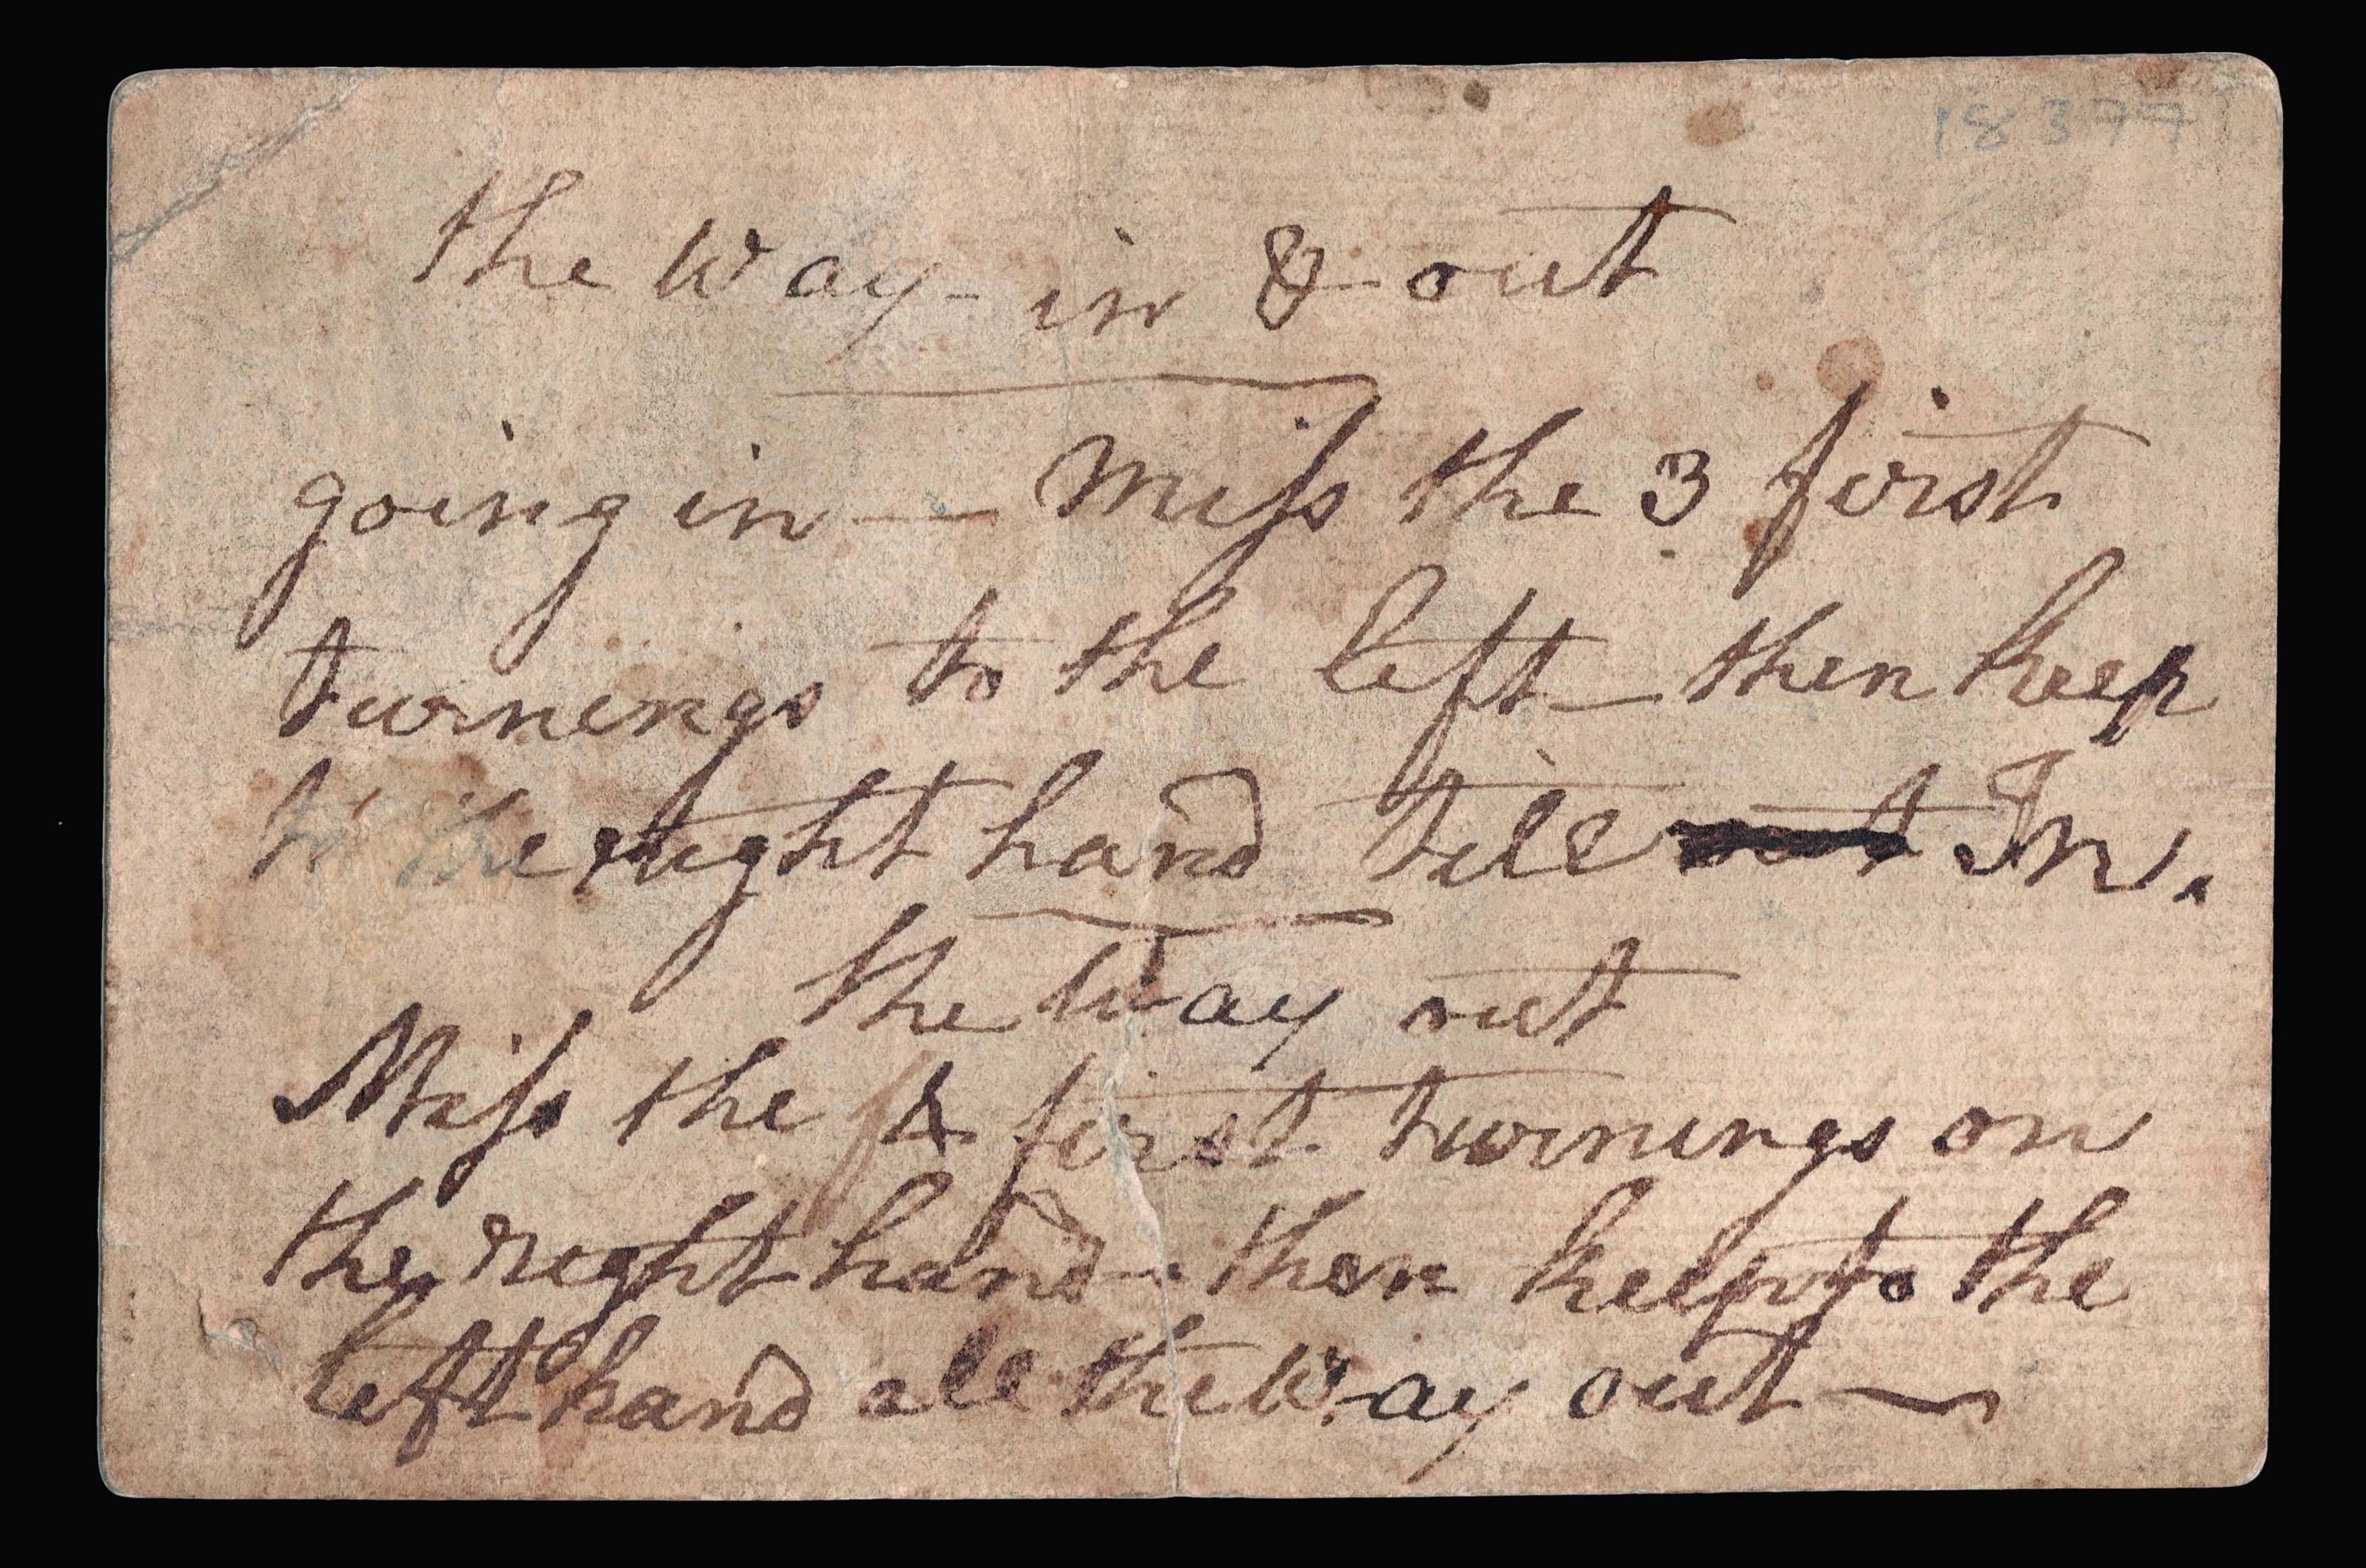 18377
the Way - in & out
going in — Miss the 3 first
turnings to the left — then keep
to the right hand till out In.
the Way out
Miss the 4 first turnings on
the right hand - then keep to the
left hand all the Way out ~